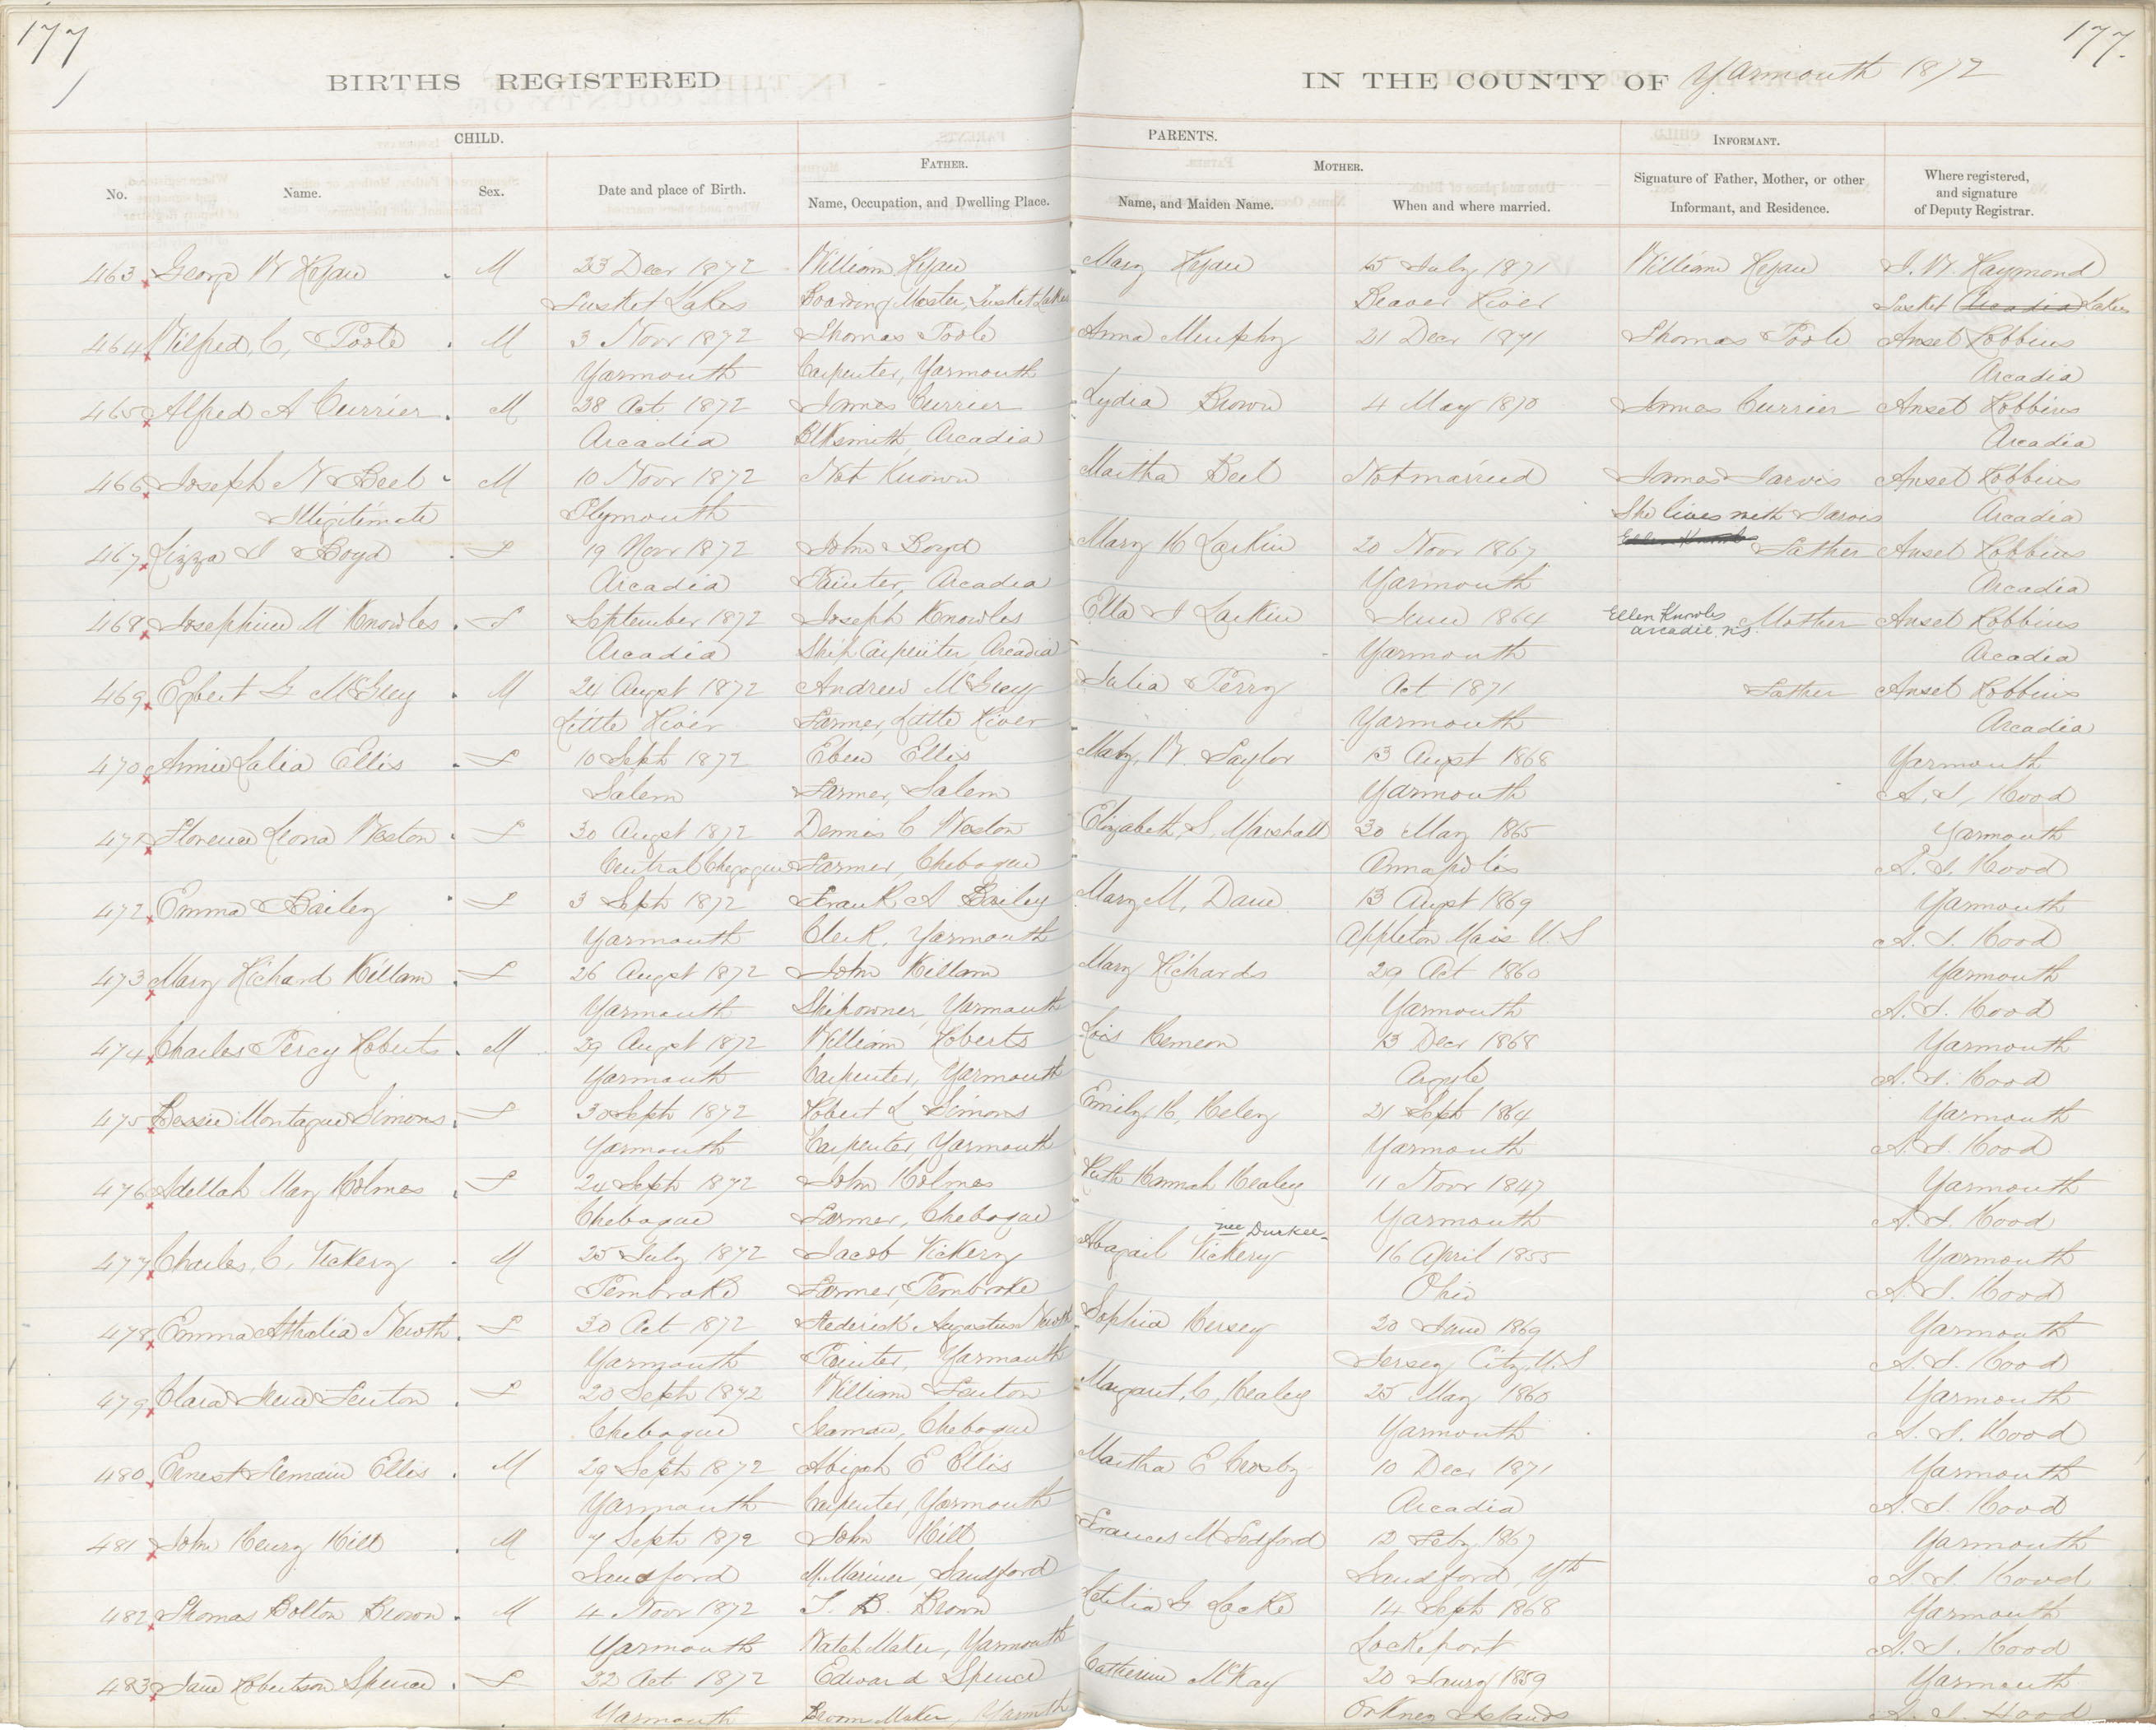 177
177.
BIRTHS REGISTERED IN THE COUNTY OF Yarmouth 1872
CHILD. PARENTS. INFORMANT.
FATHER. MOTHER.
No. Name. Sex. Date and place of Birth. Name, Occupation, and Dwelling Place. Name, and Maiden Name. When and where married. Signature of Father, Mother, or other Informant, and Residence. Where registered, and signature of Deputy Registrar.
463 George W M 23 Decr 1872 William Mary 15 July 1871 William J. W. Raymond
Tusket Lakes Boarding Master, Tusket Lakes Beaver River Tusket Arcadia Lakes
464 Wilfred, C, Poole M 3 Novr 1872 Thomas Poole Anna Murphy 21 Decr 1871 Thomas Poole Ansel Robbins
Yarmouth Carpenter, Yarmouth Arcadia
465 Alfred A Currier M 28 Oct 1872 James Currier Lydia Brown 4 May 1870 James Currier Ansel Robbins
Arcadia Blksmith, Arcadia Arcadia
466 Joseph N Beel M 10 Novr 1872 Not Known Martha Beel Not married James Jarvis Ansel Robbins
Illigitimate Plymouth She lives with Jarvis Arcadia
467 Lizza J Boyd F 19 Novr 1872 John Boyd Mary H Larkin 20 Novr 1867 Father Ansel Robbins
Arcadia Painter, Arcadia Yarmouth Arcadia
468 Josephine M Knowles F September 1872 Joseph Knowles Etta J Larkin June 1864 Ellen Knowles Mother Ansel Robbins
Arcadia Ship Carpenter, Arcadia Yarmouth Arcadie, N.S. Arcadia
469 Egbert G McGrey M 24 Augst 1872 Andrew McGrey Julia Perry Oct 1871 Father Ansel Robbins
Little River Farmer, Little River Yarmouth Arcadia
470 Annie Lalia Ellis F 10 Sept 1872 Eben Ellis Mary, W. Saylor 13 Augst 1868 Yarmouth
Salem Farmer, Salem Yarmouth A. J. Hood
471 Florence Leona Weston F 30 Augst 1872 Dennis C Weston Elizabeth, S, Marshall 30 May 1865 Yarmouth
Central Chegogin Farmer, Chebogue Annapolis A. J. Hood
472 Emma Bailey F 3 Sept 1872 Frank A Bailey Mary M, Dane 13 Augst 1869 Yarmouth
Yarmouth Clerk, Yarmouth Appleton Maie U. S A. J. Hood
473 Mary Richard Killam F 26 Augst 1872 John Killam Mary Richards 29 Oct 1860 Yarmouth
Yarmouth Shipowner, Yarmouth Yarmouth A. J. Hood
474 Charles Percy Roberts M 29 Augst 1872 William Roberts Lois Hemeon 13 Decr 1868 Yarmouth
Yarmouth Carpenter, Yarmouth Argyle A. J. Hood
475 Bessie Montague Simons F 30 Sept 1872 Robert L Simons Emily, H, Heley 21 Sept 1864 Yarmouth
Yarmouth Carpenter, Yarmouth Yarmouth A. J. Hood
476 Adellah May Holmes F 24 Sept 1872 John Holmes Ruth Hannah Healey 11 Novr 1847 Yarmouth
Chebogue Farmer, Chebogue Yarmouth A. J. Hood
nee Durkee
477 Charles, C, Vickery M 25 July 1872 Jacob Vickery Abagail Vickery 16 April 1855 Yarmouth
Pembroke Farmer, Pembroke Ohio A. J. Hood
478 Emma Athalia North F 30 Oct 1872 Frederick Augustus North Sophia Hersey 20 June 1869 Yarmouth
Yarmouth Painter, Yarmouth Jersey City, U. S A. J. Hood
479 Clara Fenton F 20 Sept 1872 William Fenton Margaret, C, Healey 25 May 1860 Yarmouth
Chebogue Seaman, Chebogue Yarmouth A. J. Hood
480 Ernest Ellis M 29 Sept 1872 Abigah E Ellis Martha E Crosby 10 Decr 1871 Yarmouth
Yarmouth Carpenter, Yarmouth Arcadia A. J. Hood
481 John Henry Hill M 7 Sept 1872 John Hill Frances M Sedford 12 Feby 1867 Yarmouth
Sandford M. Mariner, Sandford Sandford, Yth A. J. Hood
482 Thomas Bolton Brown M 4 Novr 1872 T. B. Brown Letilia G Locke 14 Sept 1868 Yarmouth
Yarmouth Watch Maker, Yarmouth Lockeport A. J. Hood
483 Jane Robertson Spence F 22 Oct 1872 Edward Spence Catherine McKay 20 Jany 1859 Yarmouth
Yarmouth Broom Maker, Yarmth Orkney Islands A. J. Hood